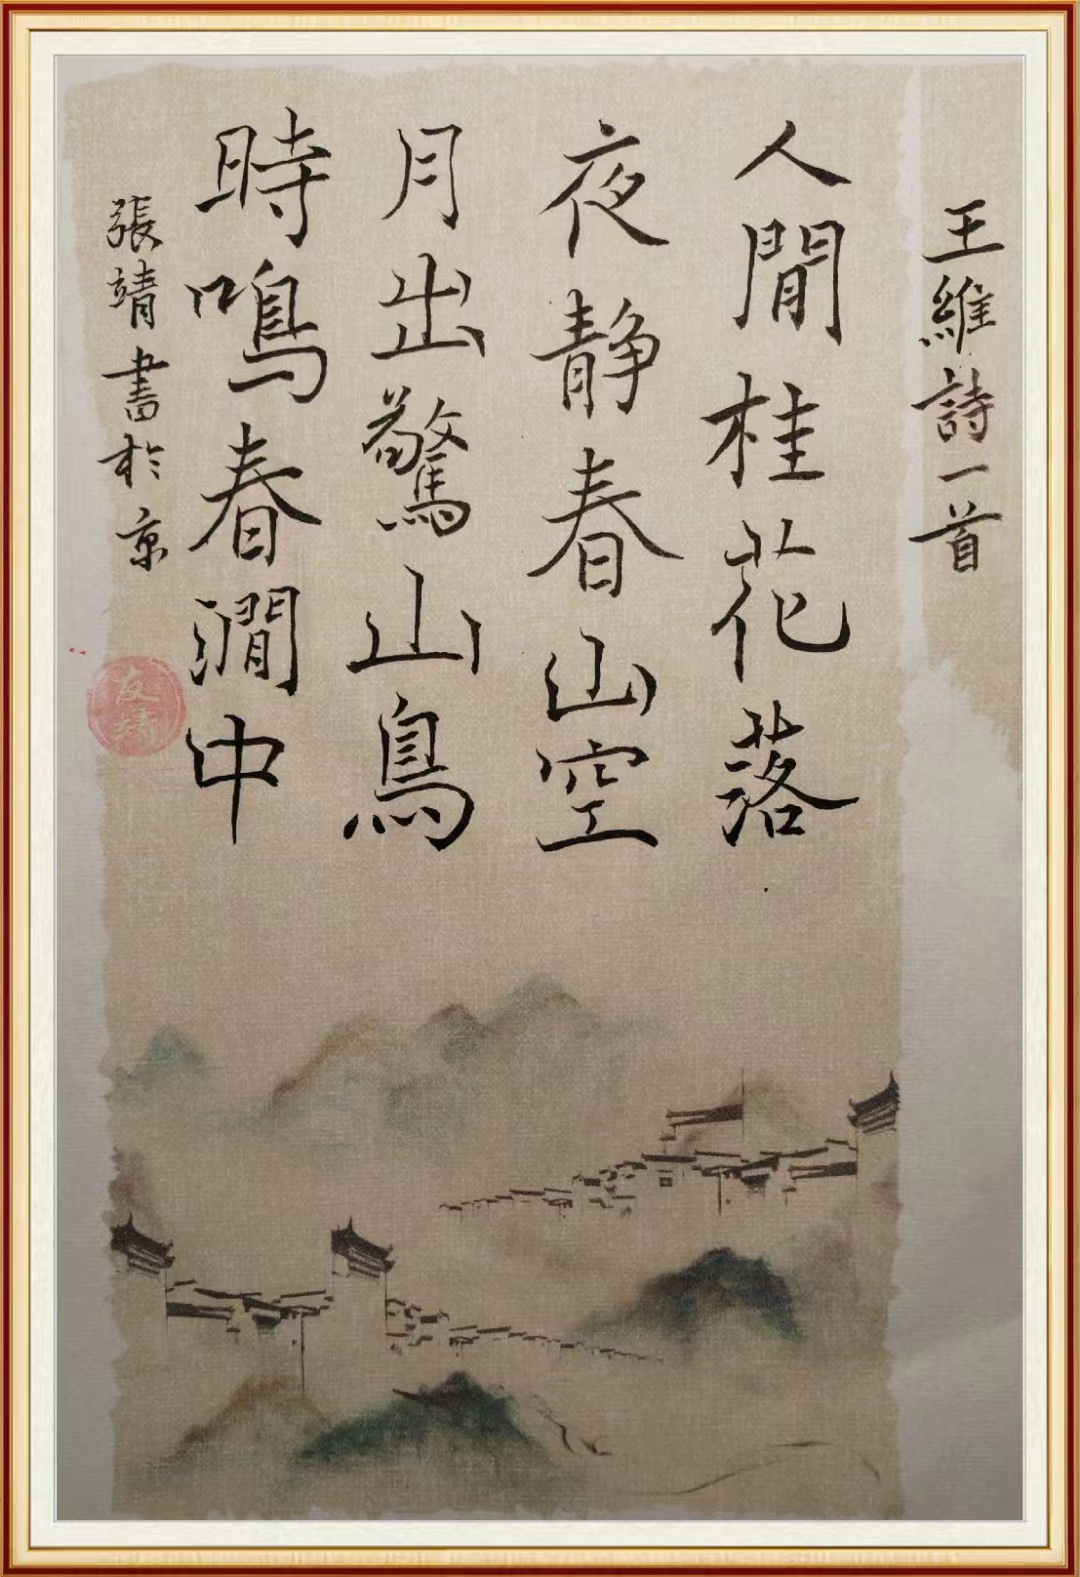 王維詩一首
人閒桂花落
夜静春山空
月出驚山鳥
時鳴春澗中
張靖書於京
友靖